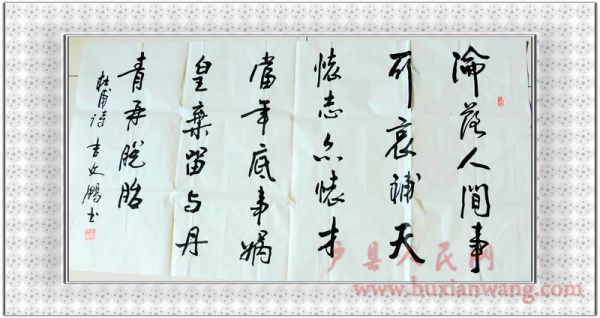 淪落人間事
可哀補天
懷志亦懷才
當年底事媧
皇棄留与丹
青再脱胎
杜甫诗 李文鹏书
户县人民网
www.huxianwang.com